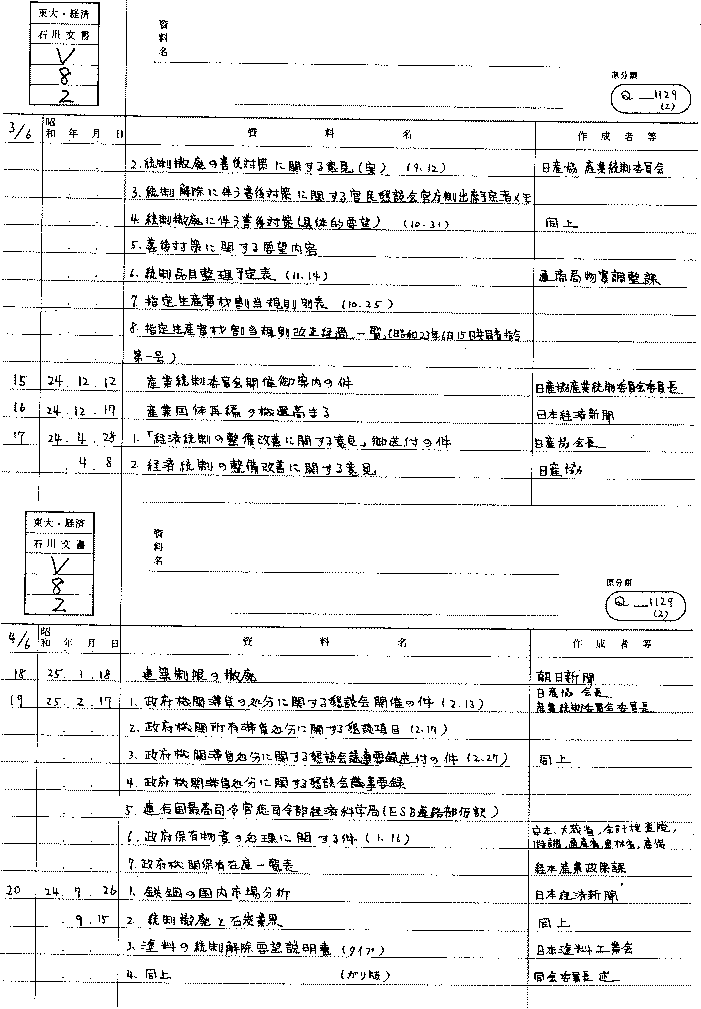 東大・経済
石川文書
V
8
2
資料名
原分類
Q 1129
(2)
3/6 昭和 年 月 日 資料名 作成者等
2. 統制撤廃の善後対策に関する意見(案) (9.12) 日産協 産業統制委員会
3. 統制解除に伴う善後対策に関する官民懇談会官庁側出席予定者メモ
4. 統制撤廃に伴う善後対策(具体的要望) (10.31) 同上
5. 善後対策に関する要望内容
6. 統制品目整理予定表 (11.14) 通商局物資調整課
7. 指定生産資材割当規則別表 (10.25)
8. 指定生産資材割当規則改正経過一覧(昭和23年6月15日
第一号)
15 24.12.12 産業統制委員会開催御案内の件 日産協産業統制委員会委員長
16 24.12.17 産業団体再編の機運高まる 日本経済新聞
17 24.4.28 1.「経済統制の整備改善に関する意見」御送付の件 日産協会長
4.8 2. 経済統制の整備改善に関する意見 日産協
東大・経済
石川文書
V
8
2
資料名
原分類
Q 1129
(2)
4/6 昭和 年 月 日 資料名 作成者等
18 25.1.18 建築制限の撤廃 朝日新聞
19 25.2.17 1. 政府機関滞貨の処分に関する懇談会開催の件 (2.13) 日産協 会長
産業統制委員会委員長
2. 政府機関所有滞貨処分に関する懇談項目 (2.17)
3. 政府機関滞貨処分に関する懇談会議事要録送付の件 (2.27) 同上
4. 政府機関滞貨処分に関する懇談会議事要録
5. 連合国最高司令官総司令部経済科学局(ESB連絡部仮訳)
6. 政府保有物資の処理に関する件 (1.16) 安本、大蔵省、会計検査院、
特調、通産省、農林省、産復
7. 政府機関保有在庫一覧表 経本産業政策課
20 24.9.26 1. 鉄鋼の国内市場分析 日本経済新聞
9.15 2. 統制撤廃と石炭業界 同上
3. 塗料の統制解除要望説明書(タイプ) 日本塗料工業会
4. 同上 (ガリ版) 同会委員長 述